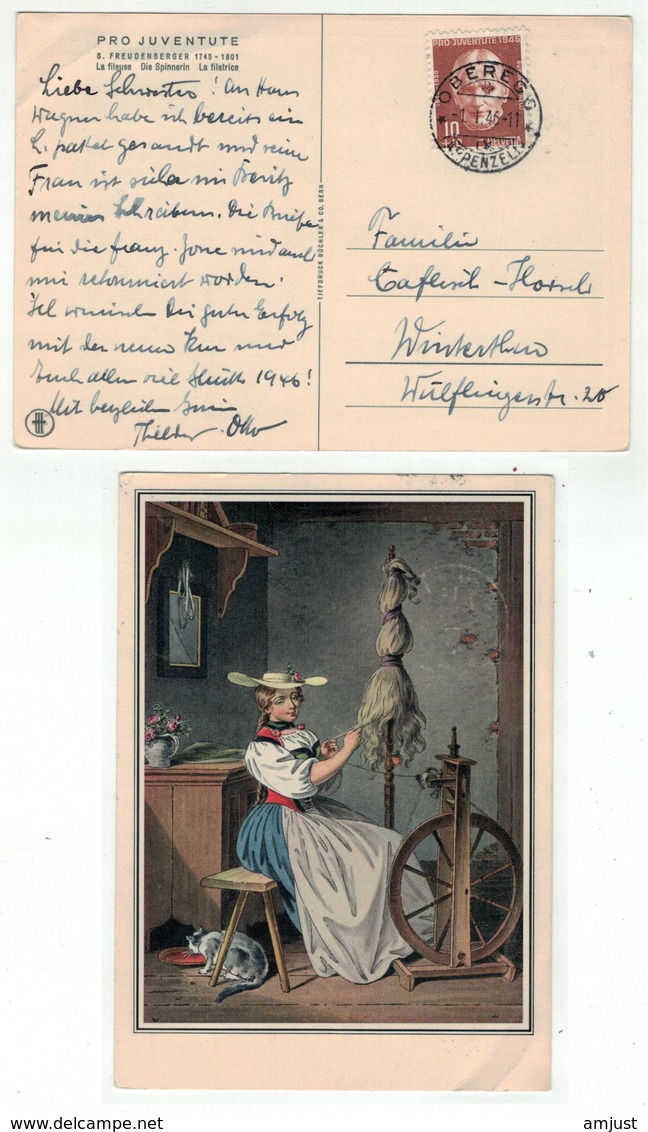 PRO JUVENTUTE
S. FREUDENBERGER 1745-1801
La fileuse Die Spinnerin La filatrice
Liebe Schwester! An Hans
Wagner habe ich bereits ein
L. paket gesandt und seine
Frau ist sicher im Besitz
meines Schreibens. Die Briefe
für die franz. Zone sind auch
mir retourniert worden.
Ich wünsche Dir guten Erfolg
mit der neuen Kur und
Euch allen viel Glück 1946!
Mit herzlichen
Otto
TIEFDRUCK BÜCHLER & CO. BERN
PRO JUVENTUTE 1945
10
HELVETIA
OBEREGG
-1. I. 46-11
(APPENZELL)
Familie
Caflisch-
Winterthur
Wülflingerstr. 20
www.delcampe.net
amjust